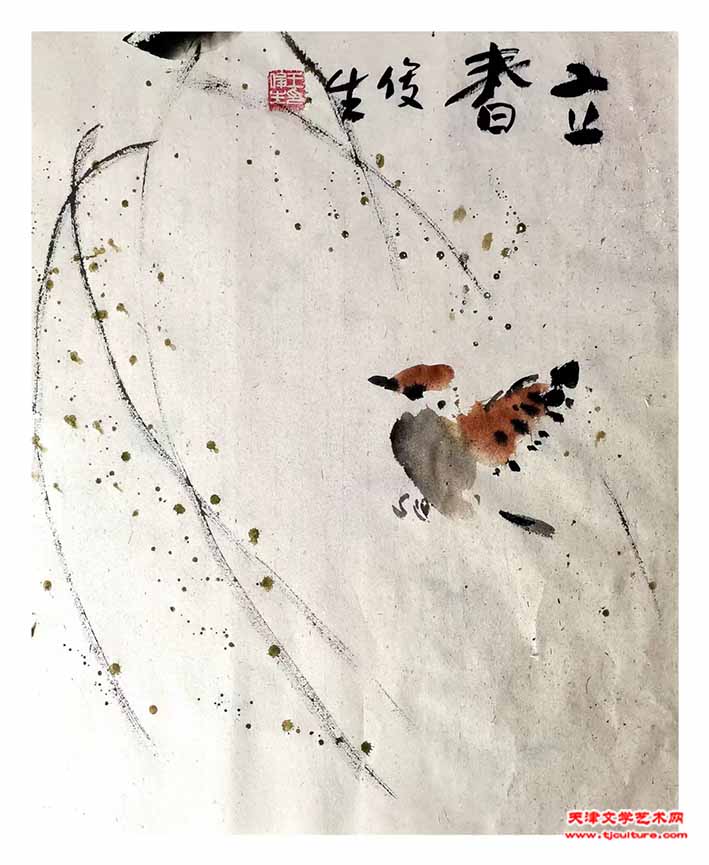 立春 俊生
天津文学艺术网
www.tjculture.com